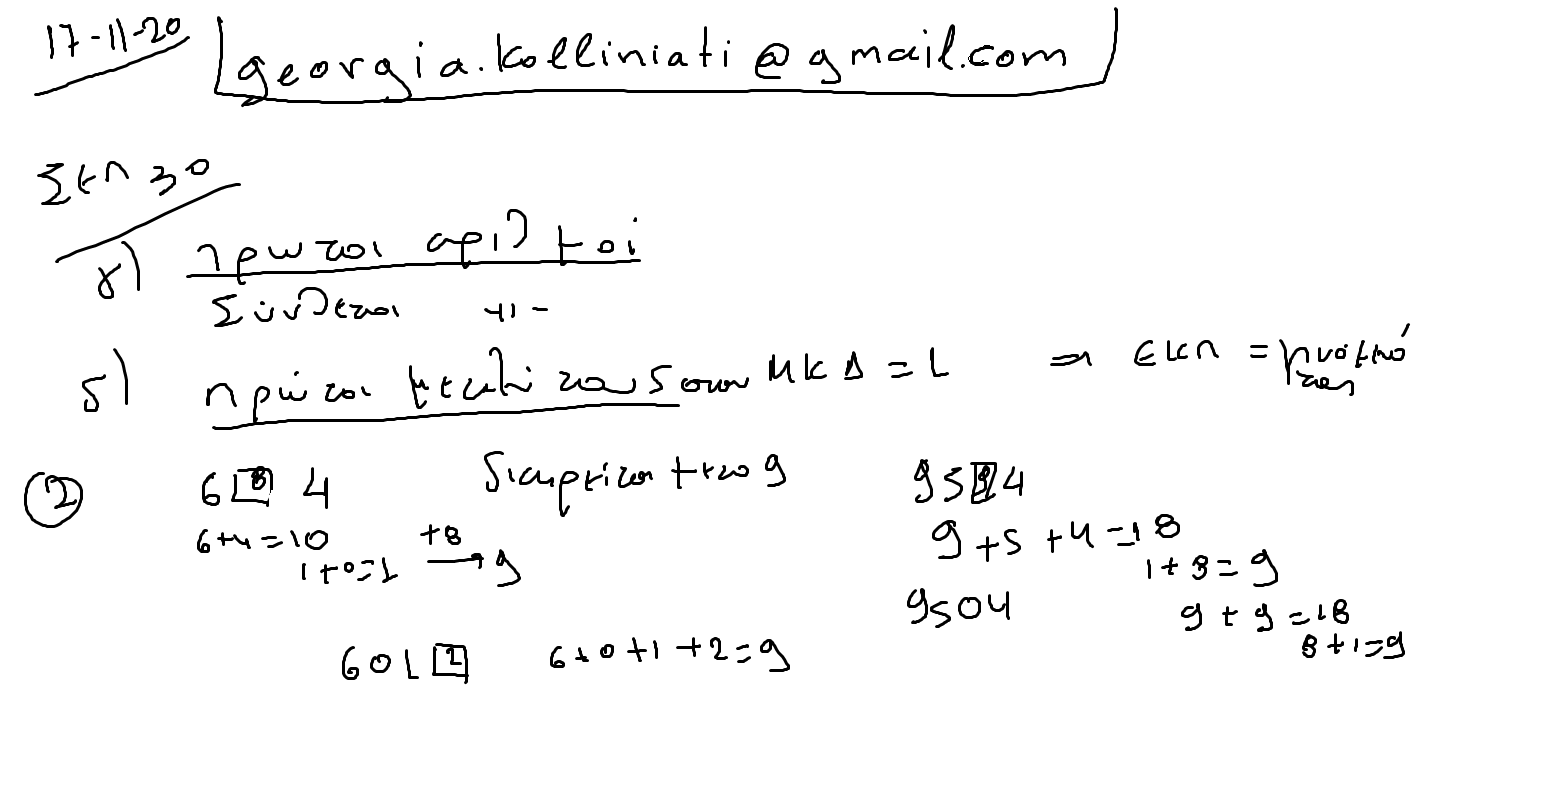 17-11-20 georgia.kolliniati@gmail.com
Σελ 30
γ) πρωτοι αριθμοι
Σύνθετοι -11-
δ) πρώτοι μεταξύ τους οταν ΜΚΔ = 1 ⇒ ΕΚΠ = γινόμενό τους
② 6 8 4 διαιρείται με το 9 95 9 4
6+4=10 +8 9+5+4=18
1+0=1 → 9 1+8=9
9504 9+9=18
601 2 6+0+1+2=9 8+1=9